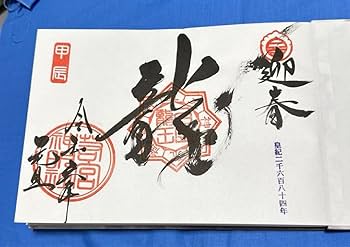 迎春
皇紀二千六百八十四年
龍
甲辰
令和六年
元旦
若宮
神社